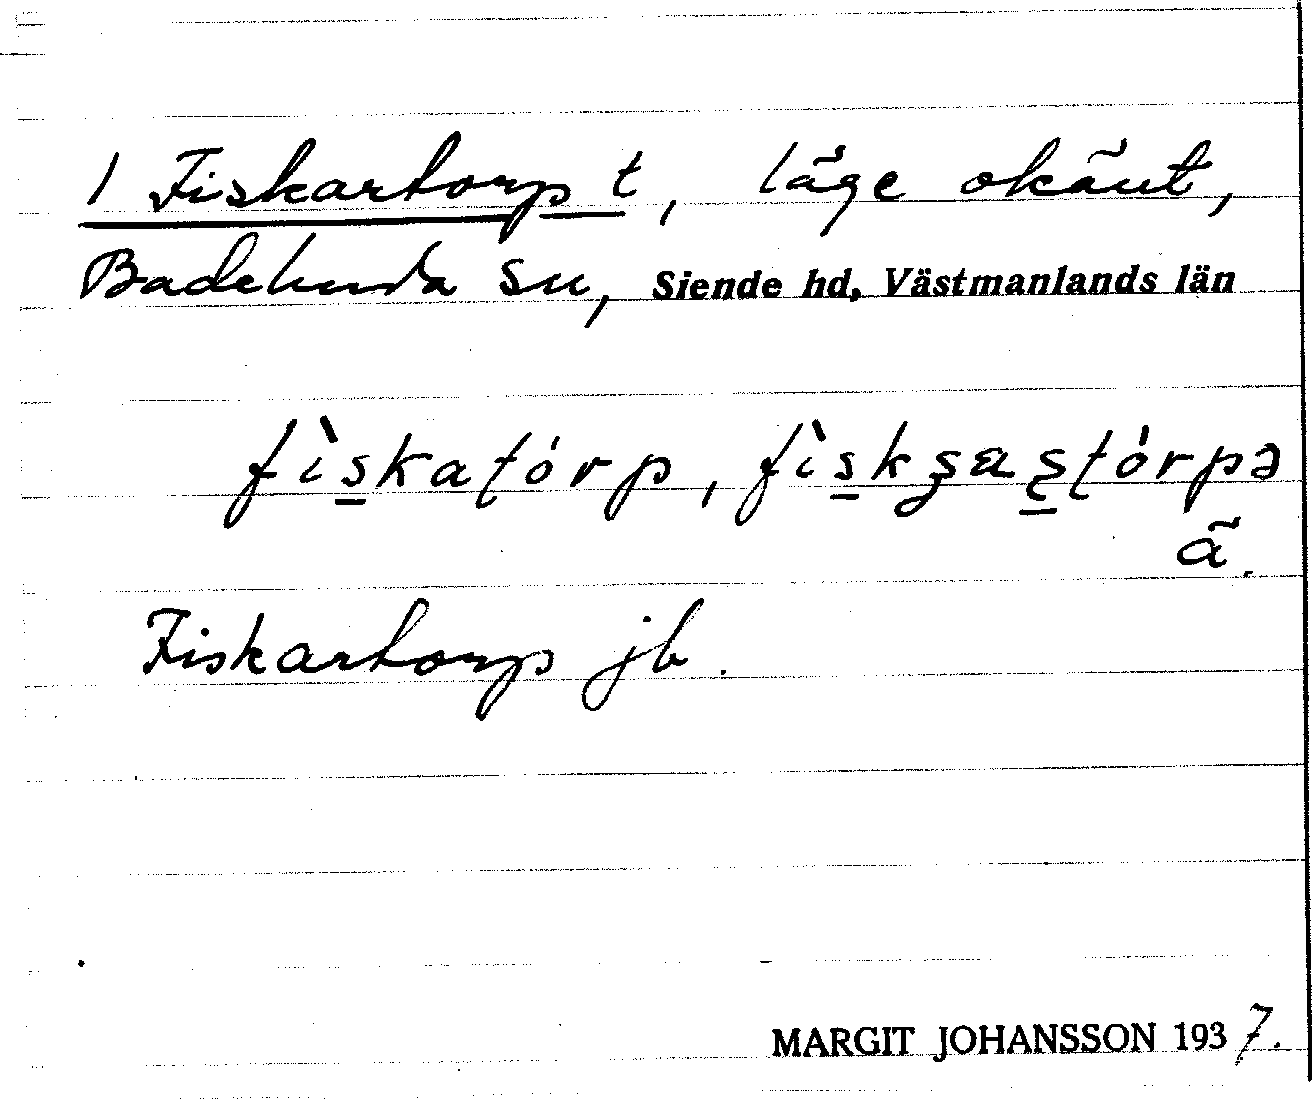 1 Fiskartorp t, läge okänt,
Badelunda sn, Siende hd, Västmanlands län
fìskatórp, fìskʒaʂtórpə
ä.
Fiskartorp jb.
MARGIT JOHANSSON 1937.